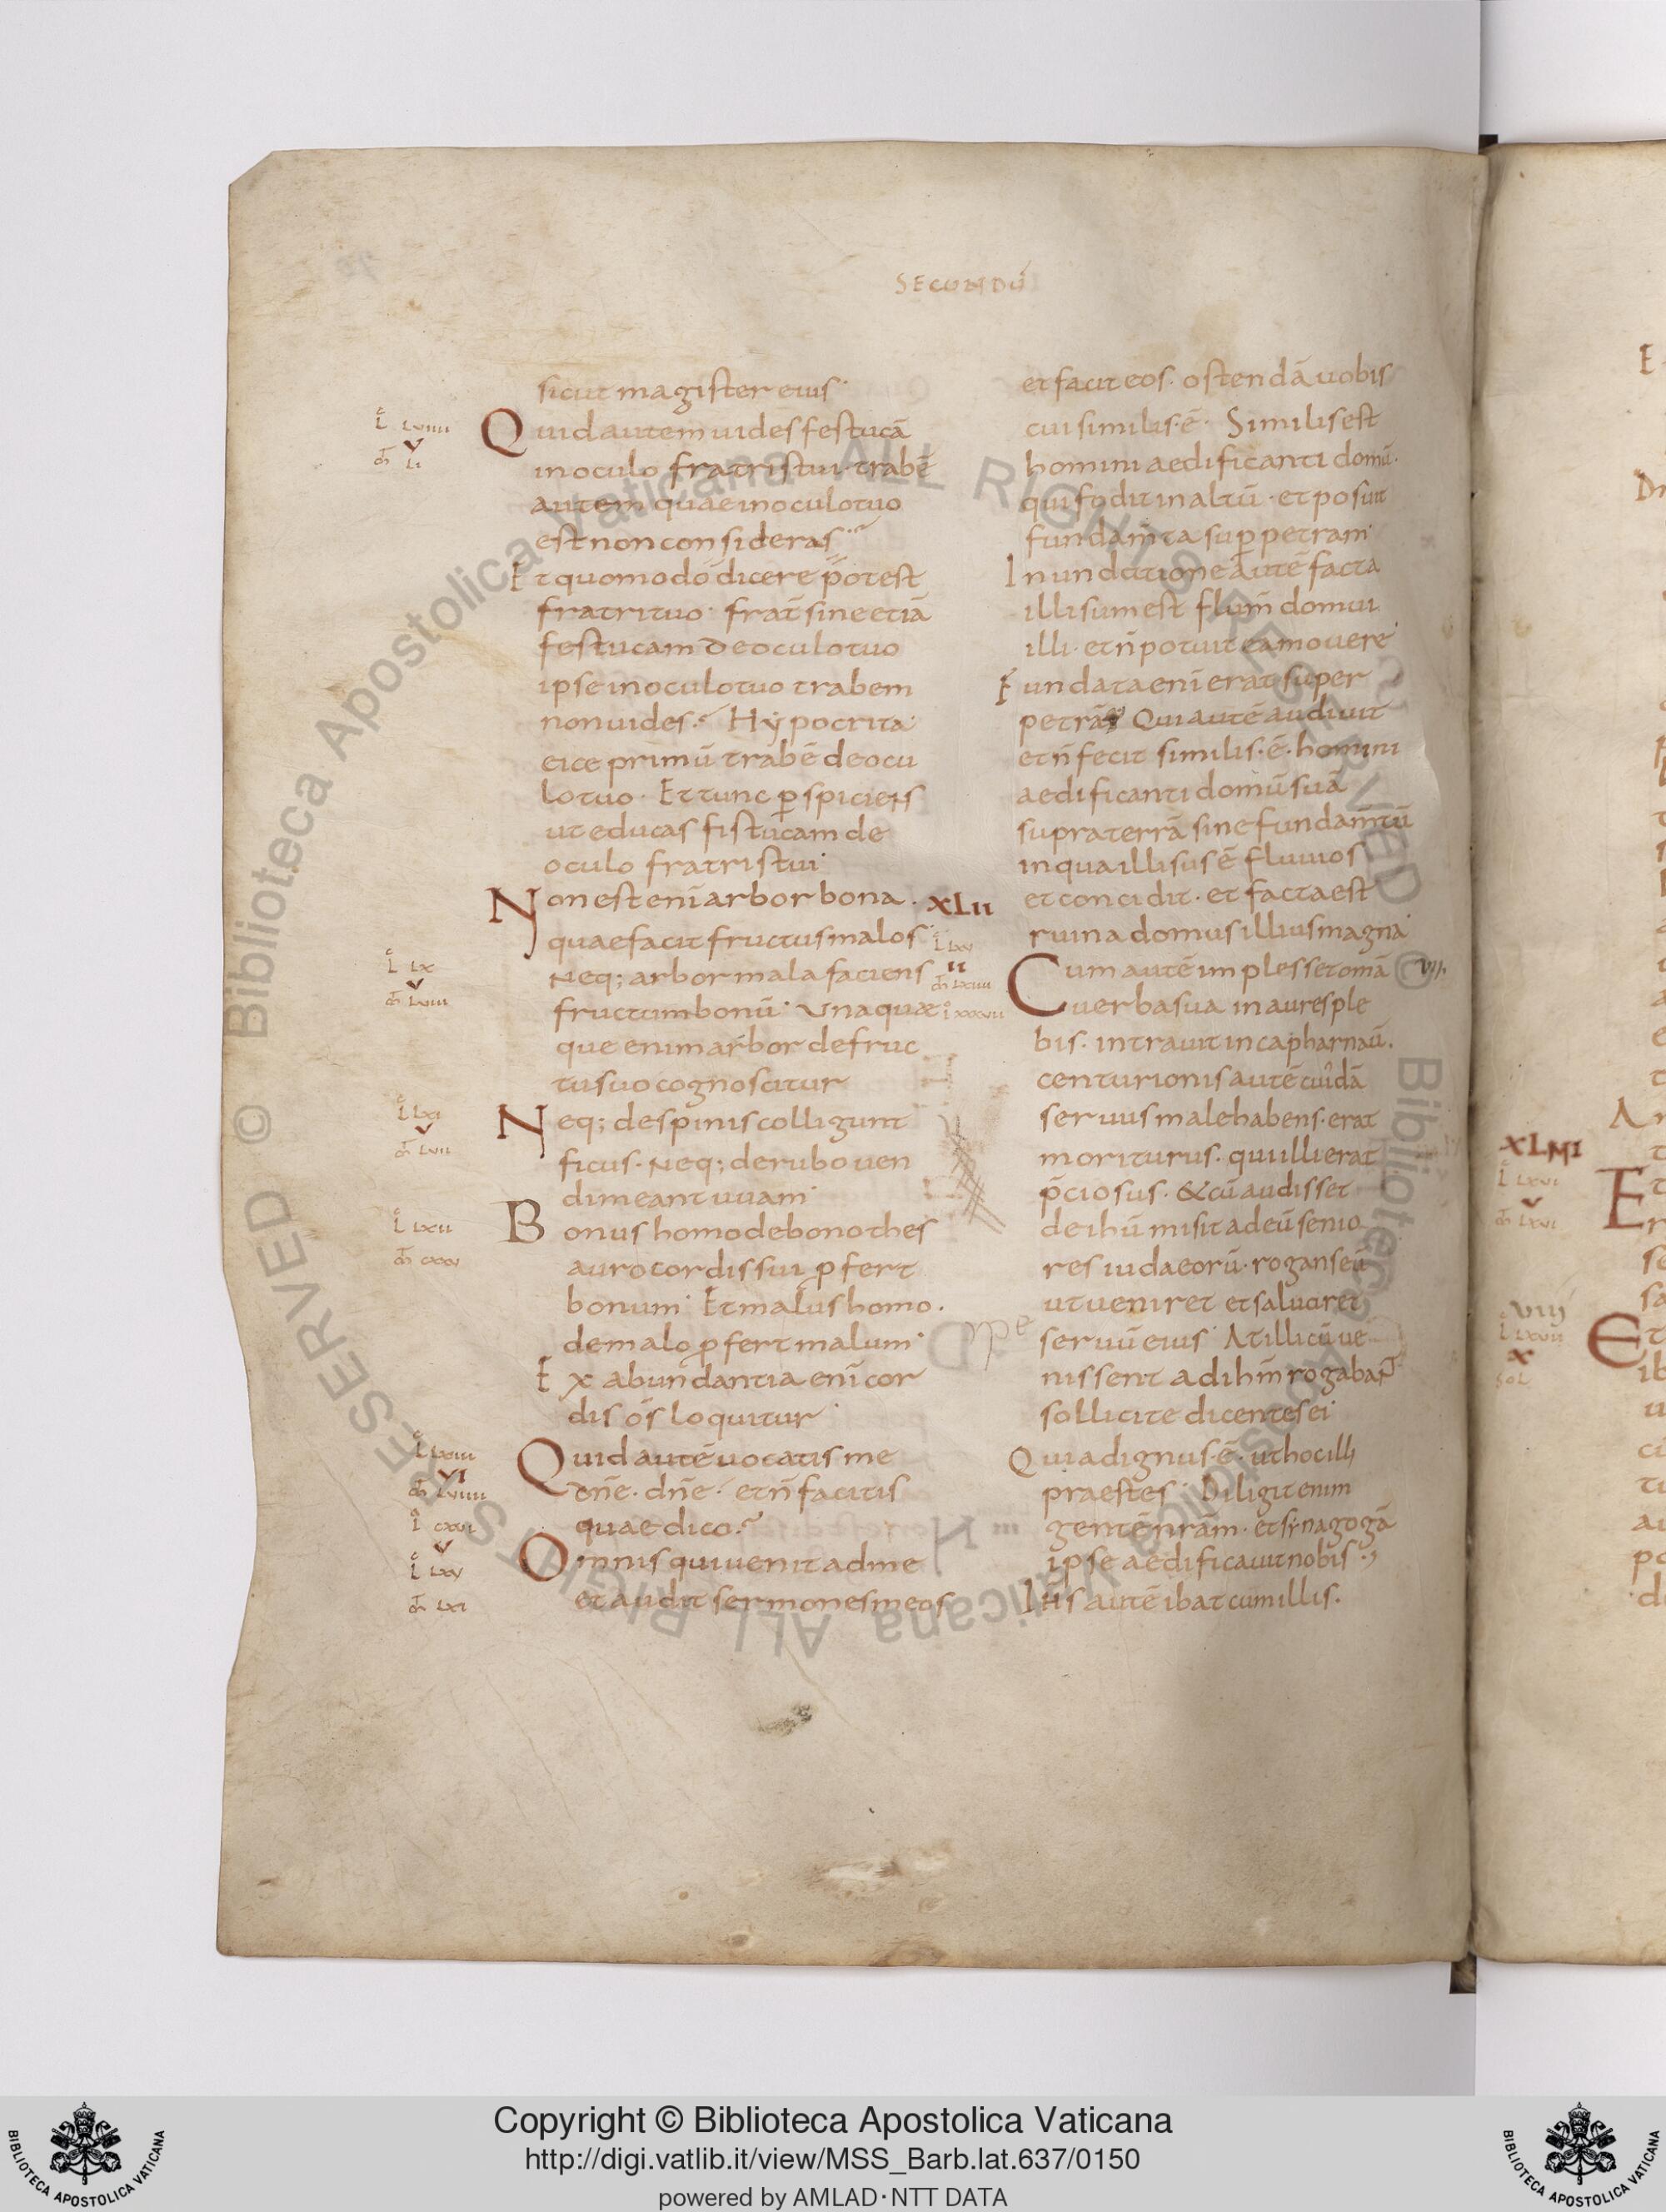 SECUNDŪ
sicut magister eius·
Quid autem uides festucā
in oculo fratris tui· trabē
autem quae in oculo tuo
est non consideras
Et quomodo dicere potest
fratri tuo· frat̄ sine etiā
festucam de oculo tuo
ipse in oculo tuo trabem
non uides. Hypocrita·
eice primū trabē de ocu
lo tuo· Et tunc ꝑspicies
ut educas fistucam de
oculo fratris tui·
Non est eni̅ arbor bona·
quae facit fructus malos·
Neq; arbor mala faciens
fructum bonū· Vnaquae
que enim arbor de fruc
tu suo cognoscitur
Neq; de spinis colligunt
ficus· Neq; de rubo uen
dimeant uuam·
Bonus homo de bono thes
auro cordis sui ꝓfert
bonum· Et malus homo·
de malo ꝓfert malum·
Ex abundantia eni̅ cor
dis os loquitur·
Quid autē uocatis me
dn̄e· dn̄e· et n̄ facitis
quae dico·
Omnis qui uenit ad me
et audit sermones meos
et facit eos· ostendā uobis
cui similis·ē· Similis est
homini aedificanti domū·
qui fodit in altū· et posuit
fundam̄ta suꝑ petram·
Inundatione autē facta
illisum est flum̄ domui
illi· et n̄ potuit eam ouere·
Fundata eni̅ erat super
petrā Qui autē audiuit
et n̄ fecit similis·ē· homini
aedificanti domū suā
supra terrā sine fundam̄tū
in qua illisus ē fluuios
et concidit· et facta est
ruina domus illius magna·
XLII
Cum autē implesset omā
uerba sua in aures ple
bis· intrauit in capharnaū·
centurionis autē cuidā
seruus male habens· erat
moriturus· qui illi erat
p̄ciosus· & cū audisset
de ihū misit ad eū senio
res iudaeorū· rogans eū
ut ueniret et saluaret
seruū eius· At illi cū ue
nissent ad ihm̄ rogabant
sollicite dicentes ei·
Quia dignus·ē· ut hoc illi
praestes· Diligit enim
gentē nr̄am· et synagogā
ipse aedificauit nobis·
Ihs autē ibat cum illis·
XLIII
© Biblioteca Apostolica Vaticana ALL RIGHTS RESERVED
© Biblioteca Apostolica Vaticana ALL RIGHTS RESERVED
Copyright © Biblioteca Apostolica Vaticana
http://digi.vatlib.it/view/MSS_Barb.lat.637/0150
powered by AMLAD·NTT DATA
BIBLIOTECA APOSTOLICA VATICANA
BIBLIOTECA APOSTOLICA VATICANA